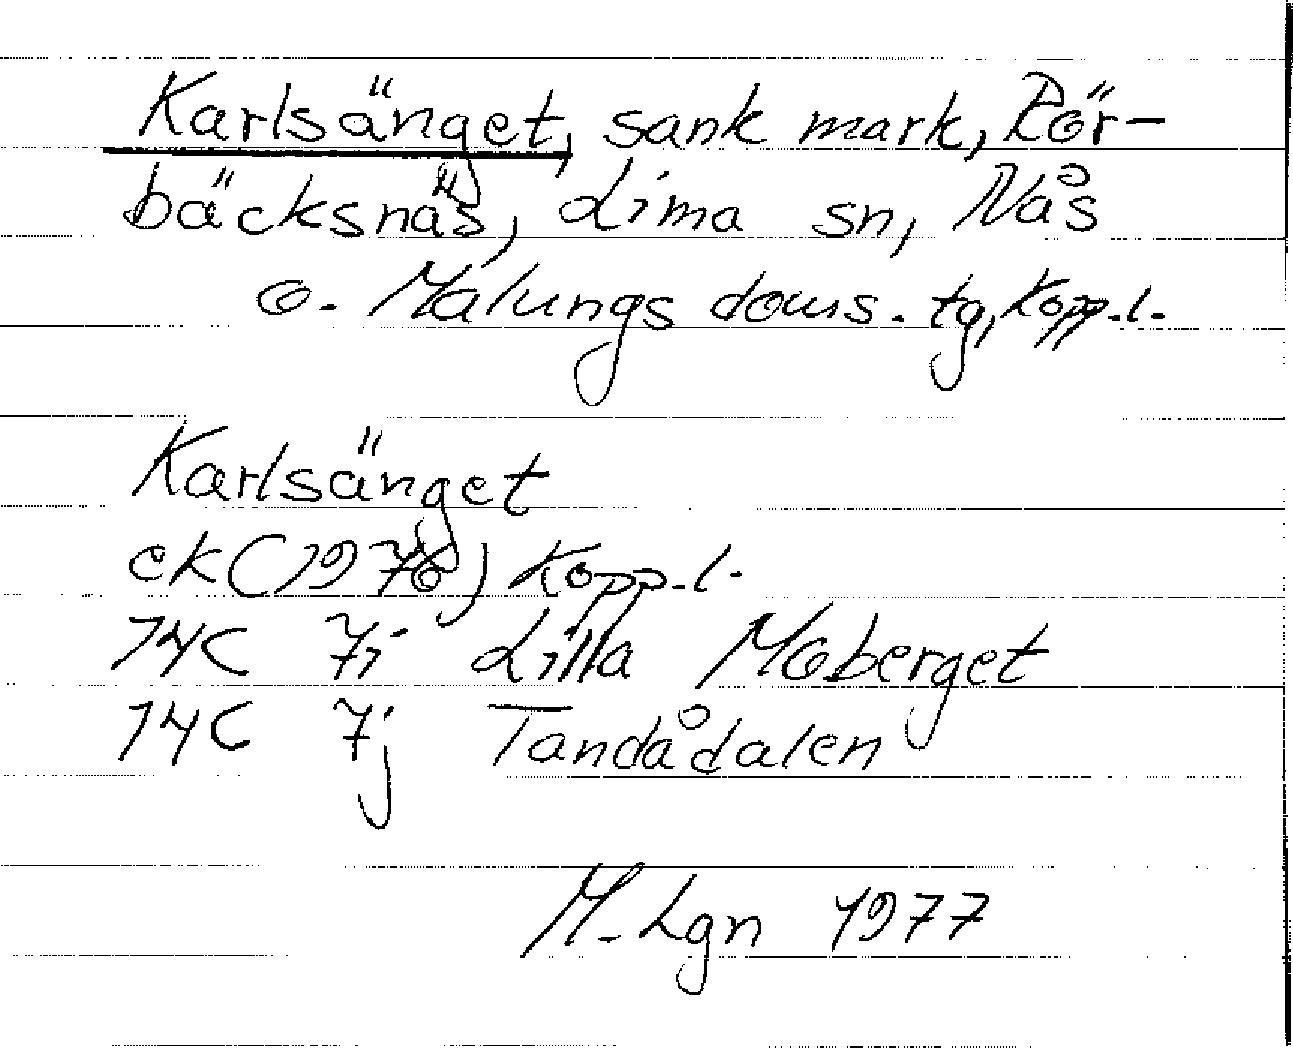 Karlsänget, sank mark, Rör-
bäcksnäs, Lima sn, Nås
o. Malungs doms. tg, Kopp. l.
Karlsänget
ek (1976) Kopp. l.
14C 7i Lilla Moberget
14C 7j Tandådalen
M. Lgn 1977